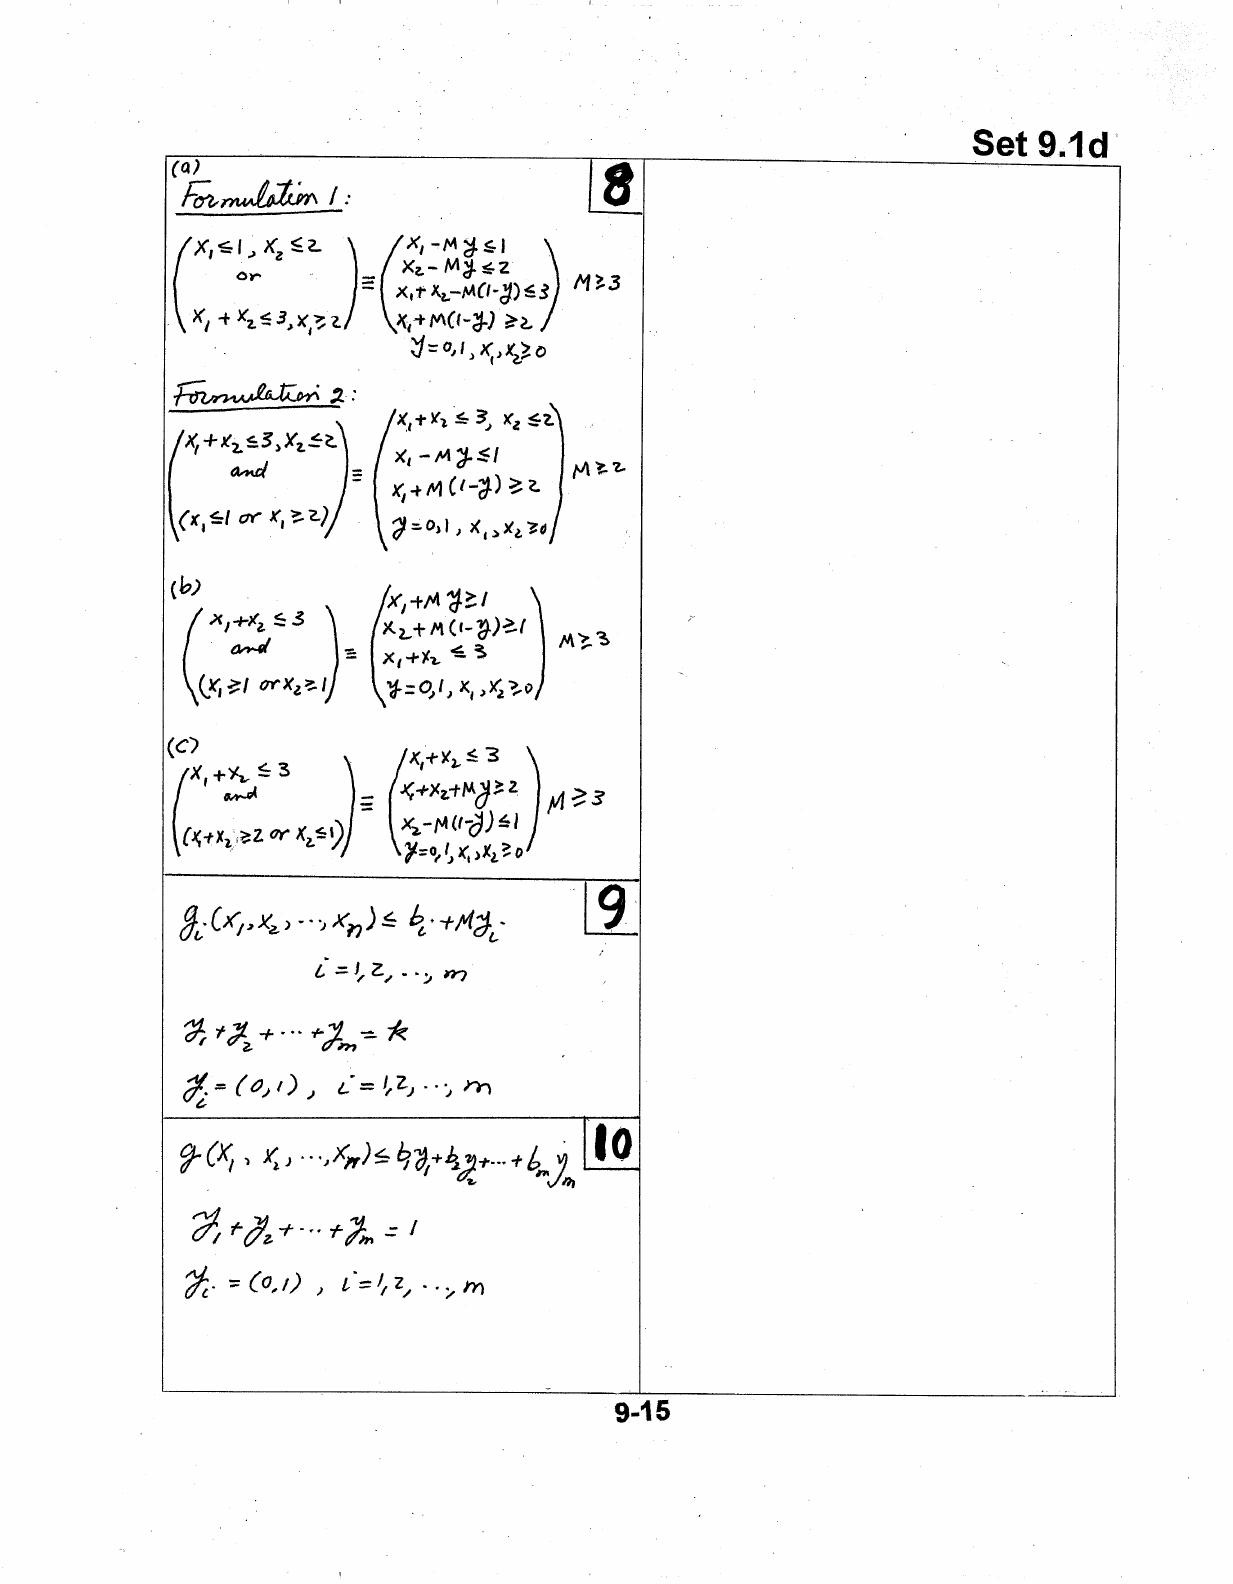 Set 9.1d
(a)
8
Formulation 1:
(x₁ ≤ 1, x₂ ≤ 2 or x₁ + x₂ ≤ 3, x₁ ≥ 2) ≡ (x₁ - My ≤ 1
x₂ - My ≤ 2
x₁ + x₂ - M(1-y) ≤ 3
x₁ + M(1-y) ≥ 2) M ≥ 3
y = 0,1, x₁, x₂ ≥ 0
Formulation 2:
(x₁ + x₂ ≤ 3, x₂ ≤ 2 and (x₁ ≤ 1 or x₁ ≥ 2)) ≡ (x₁ + x₂ ≤ 3, x₂ ≤ 2
x₁ - My ≤ 1
x₁ + M(1-y) ≥ 2
y = 0,1, x₁, x₂ ≥ 0) M ≥ 2
(b)
(x₁ + x₂ ≤ 3 and (x₁ ≥ 1 or x₂ ≥ 1)) ≡ (x₁ + My ≥ 1
x₂ + M(1-y) ≥ 1
x₁ + x₂ ≤ 3
y = 0,1, x₁, x₂ ≥ 0) M ≥ 3
(c)
(x₁ + x₂ ≤ 3 and (x₁ + x₂ ≥ 2 or x₂ ≤ 1)) ≡ (x₁ + x₂ ≤ 3
x₁ + x₂ + My ≥ 2
x₂ - M(1-y) ≤ 1
y = 0,1, x₁, x₂ ≥ 0) M ≥ 3
9
gᵢ(x₁, x₂, ..., xₙ) ≤ bᵢ + Myᵢ
i = 1, 2, ..., m
y₁ + y₂ + ... + yₘ = k
yᵢ = (0,1), i = 1,2, ..., m
10
g(x₁, x₂, ..., xₙ) ≤ b₁y₁ + b₂y₂ + ... + bₘyₘ
y₁ + y₂ + ... + yₘ = 1
yᵢ = (0,1), i = 1, 2, ..., m
9-15